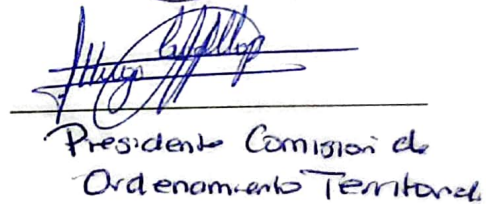 Presidente Comisión de
Ordenamiento Territorial